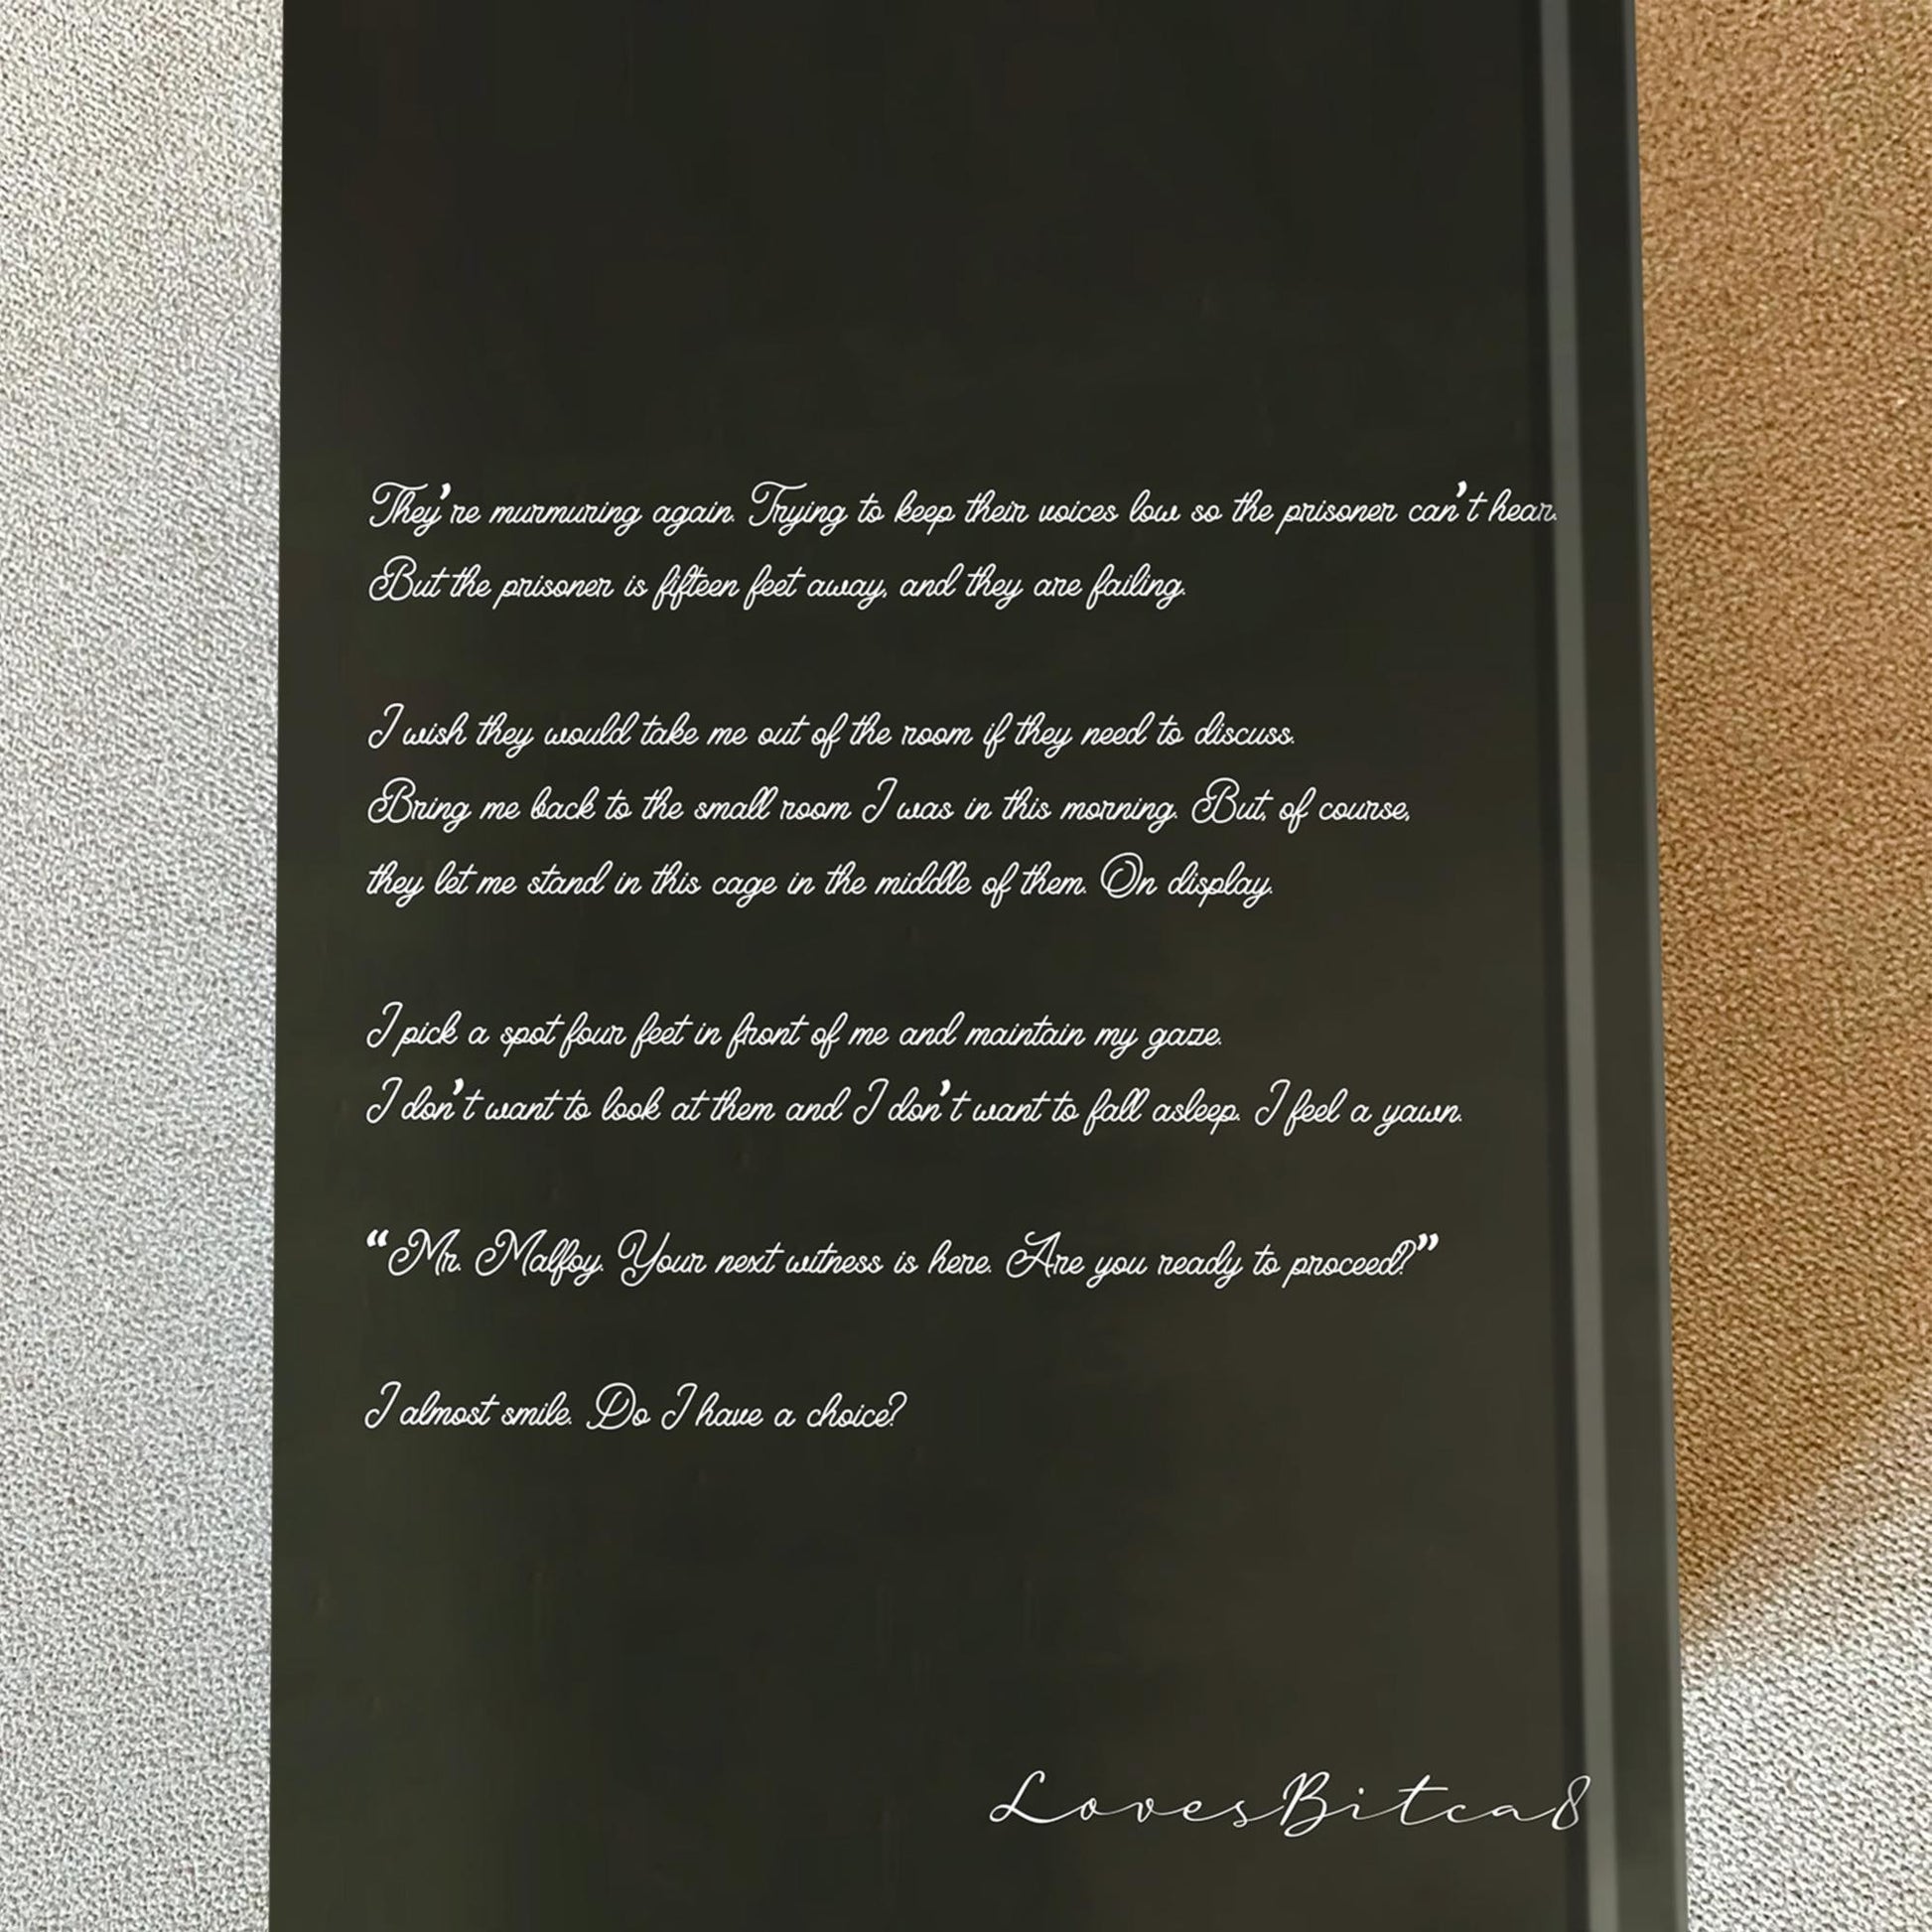 They’re murmuring again. Trying to keep their voices low so the prisoner can’t hear.
But the prisoner is fifteen feet away, and they are failing.
I wish they would take me out of the room if they need to discuss.
Bring me back to the small room I was in this morning. But, of course,
they let me stand in this cage in the middle of them. On display.
I pick a spot four feet in front of me and maintain my gaze.
I don’t want to look at them and I don’t want to fall asleep. I feel a yawn.
“Mr. Malfoy. Your next witness is here. Are you ready to proceed?”
I almost smile. Do I have a choice?
LovesBitca8